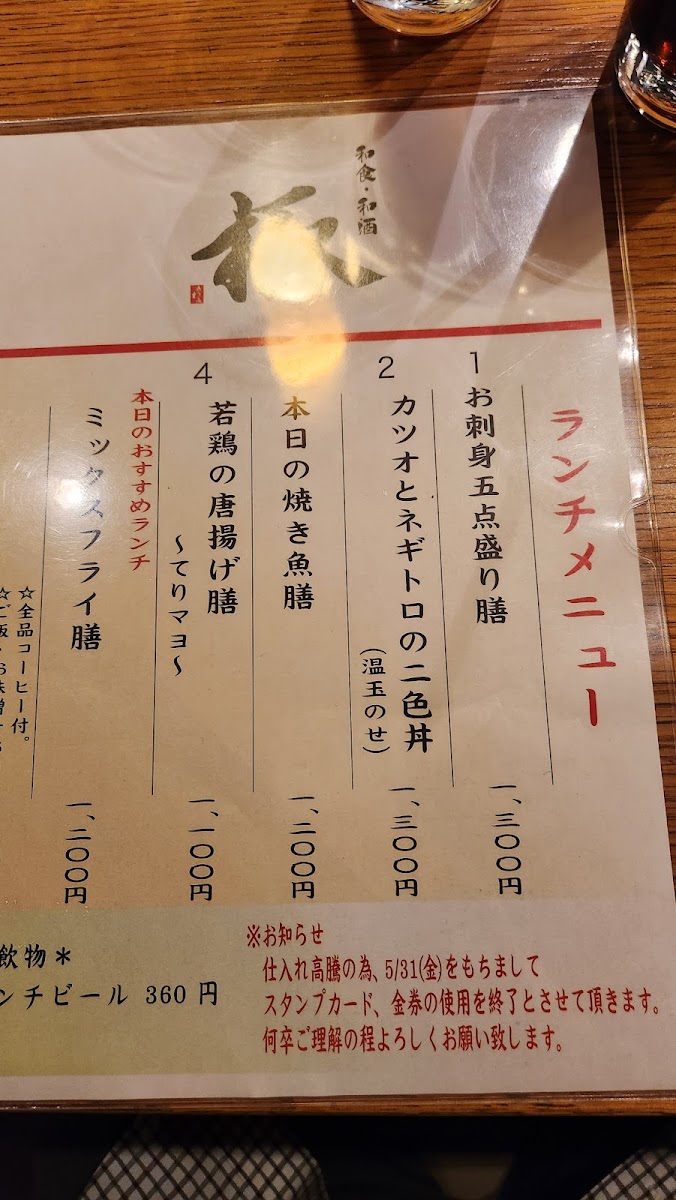 和食・和酒
極
ランチメニュー
1
お刺身五点盛り膳
一、三〇〇円
2
カツオとネギトロの二色丼
(温玉のせ)
一、三〇〇円
本日の焼き魚膳
一、二〇〇円
4
若鶏の唐揚げ膳
～てりマヨ～
一、一〇〇円
本日のおすすめランチ
ミックスフライ膳
一、二〇〇円
☆全品コーヒー付。
☆ご飯・お味噌
飲物＊
ンチビール 360 円
※お知らせ
仕入れ高騰の為、5/31(金)をもちまして
スタンプカード、金券の使用を終了とさせて頂きます。
何卒ご理解の程よろしくお願い致します。